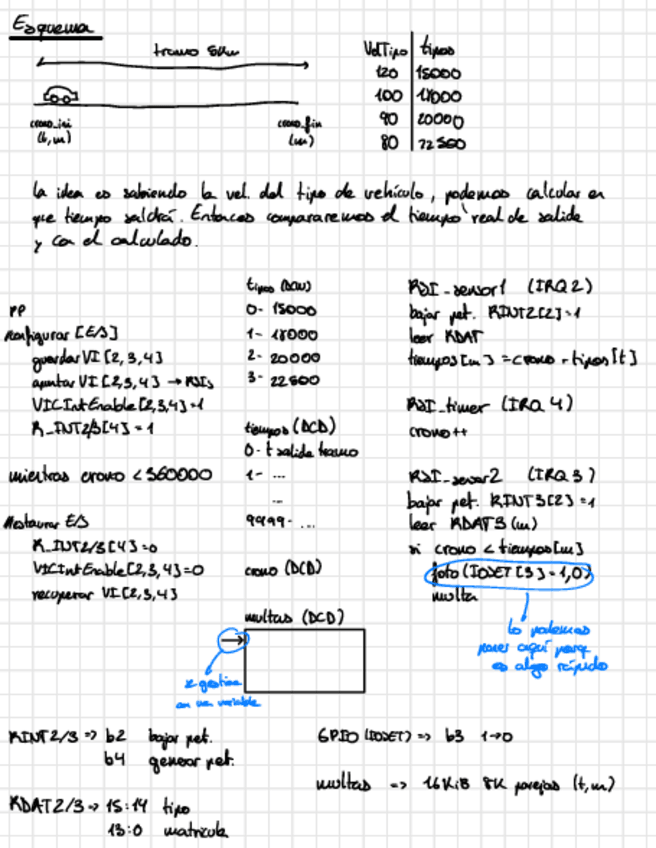 Esquema
tramo 5km
crono_ini
(t,m)
crono_fin
(m)
VelTipo tipos
120 15000
100 18000
90 20000
80 22500
la idea es sabiendo la vel. del tipo de vehículo, podemos calcular en
que tiempo saldrá. Entonces compararemos el tiempo real de salida
y con el calculado.
PP
configurar [E/S]
guardar VI[2,3,4]
apuntar VI[2,3,4] → RSIs
VICIntEnable[2,3,4]=1
R_INT2/3[4]=1
mientras crono < 360000
Restaurar E/S
R_INT2/3[4]=0
VICIntEnable[2,3,4]=0
recuperar VI[2,3,4]
tipos (DCW)
0- 15000
1- 18000
2- 20000
3- 22500
tiempos (DCD)
0- t salida tramo
1- ...
...
9999- ...
crono (DCD)
multas (DCD)
se gestiona
en una variable
RSI_sensor1 (IRQ2)
bajar pet. RINT2[2]=1
leer RDAT
tiempos[m] = crono + tipos[t]
RSI_timer (IRQ 4)
crono++
RSI_sensor2 (IRQ3)
bajar pet. RINT3[2]=1
leer RDAT3 (m)
si crono < tiempos[m]
foto (IOSET[3]=1,0)
multa
lo podemos
poner aquí porq
es algo rápido
RINT2/3 => b2 bajar pet.
b4 generar pet.
RDAT2/3 => 15:14 tipo
13:0 matrícula
GPIO (IOSET) => b3 1→0
multas => 16KiB 8K parejas (t,m)